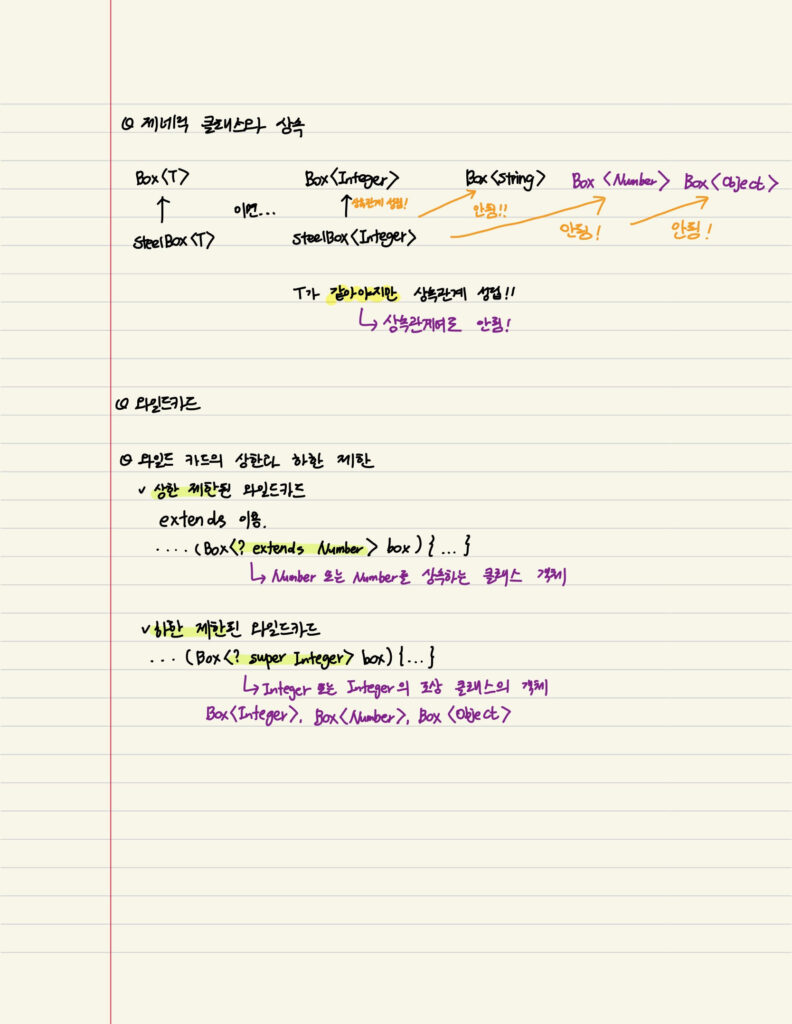 제네릭 클래스와 상속
Box<T> Box<Integer> Box<String> Box <Number> Box<Object>
이면... 상속관계 성립! 안됨!! 안됨! 안됨!
SteelBox<T> SteelBox<Integer>
T가 같아야지만 상속관계 성립!!
↳ 상속관계여도 안됨!
와일드카드
와일드 카드의 상한과 하한 제한
✓ 상한 제한된 와일드카드
extends 이용.
....(Box<? extends Number> box){...}
↳ Number 또는 Number를 상속하는 클래스 객체
✓ 하한 제한된 와일드카드
...(Box<? super Integer> box){...}
↳ Integer 또는 Integer의 조상 클래스의 객체
Box<Integer>, Box<Number>, Box<Object>